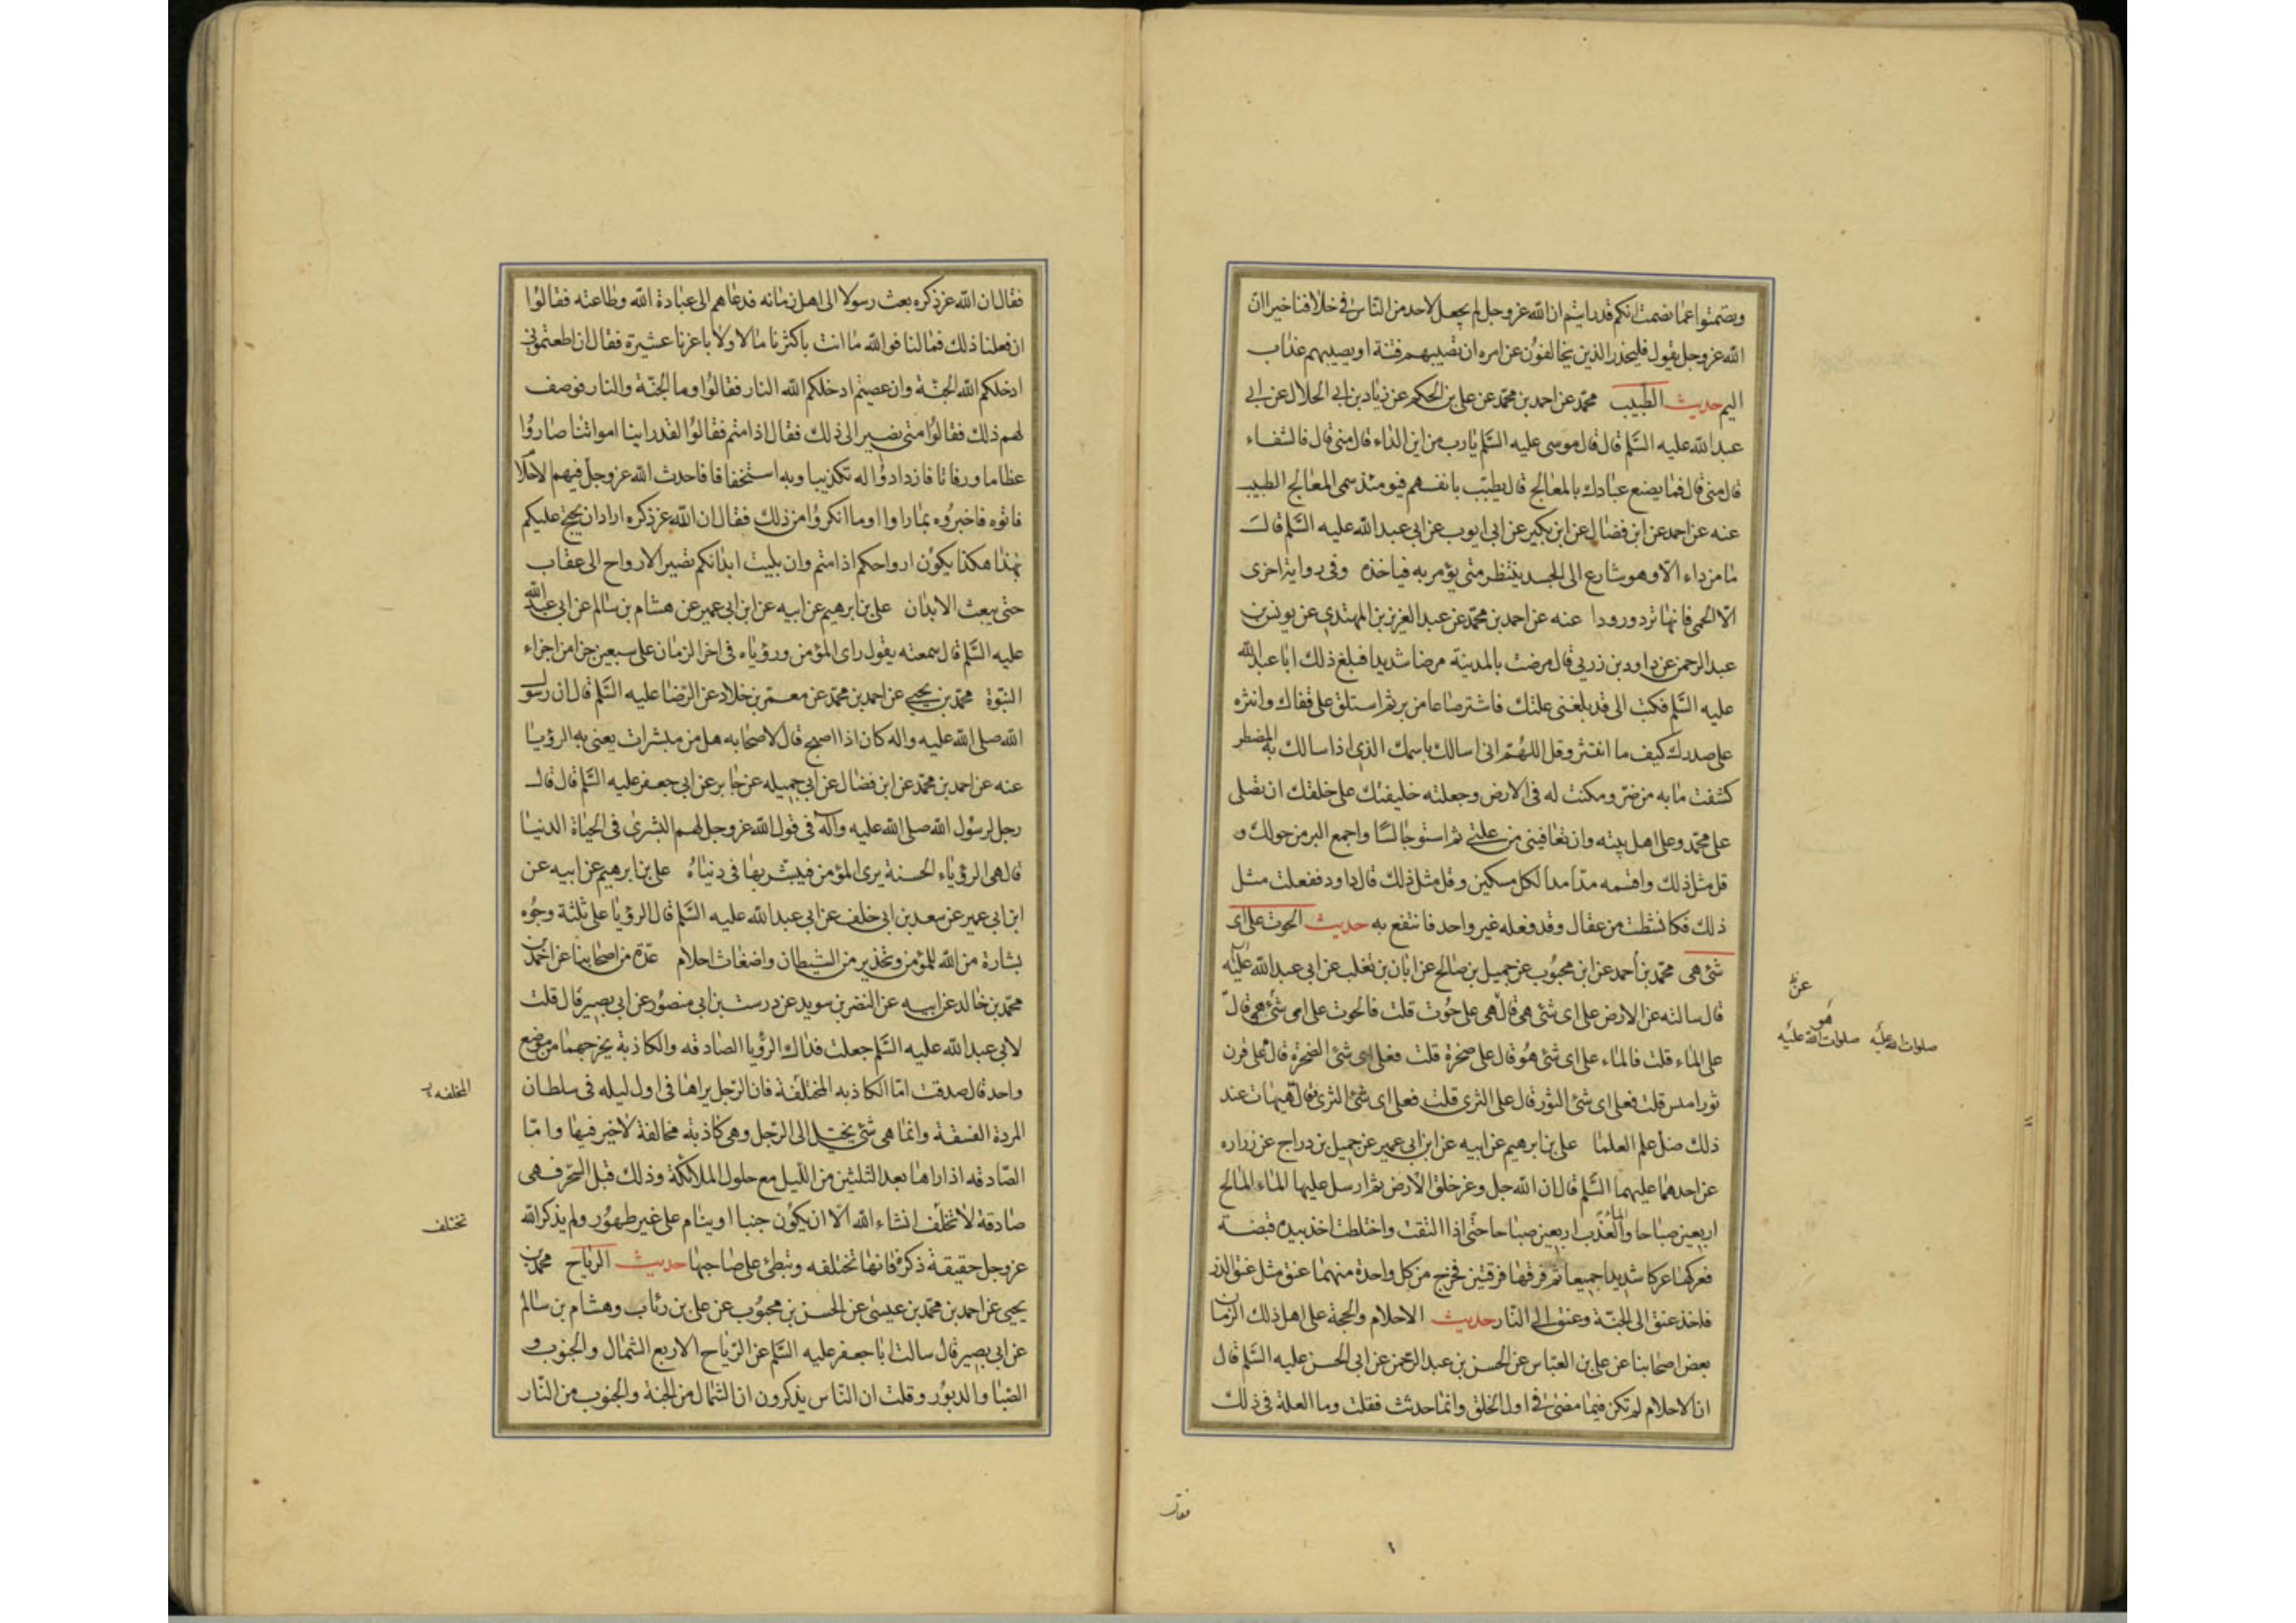 وتصمتوا عما نصمت انكم قد رايتم ان الله عز وجل لم يجعل لاحد من الناس في خلافنا خيرا ان
الله عز وجل يقول فليحذر الذين يخالفون عن امره ان تصيبهم فتنة او يصيبهم عذاب
اليم حديث الطبيب محمد عن احمد بن محمد عن علي بن الحكم عن زياد بن ابي الحلال عن ابي
عبد الله عليه السلم قال قال موسى عليه السلم يا رب من اين الداء قال مني قال فالشفاء
قال مني قال فما يصنع عبادك بالمعالج قال يطبب بانفسهم فيومئذ سمى المعالج الطبيب
عنه عن احمد عن ابن فضال عن ابن بكير عن ابي ايوب عن ابي عبد الله عليه السلم قال
ما من داء الا وهو شارع الى الجسد ينتظر متى يؤمر به فياخذه وفي رواية اخرى
الا الحمى فانها ترد ورودا عنه عن احمد بن محمد عن عبد العزيز بن المهتدي عن يونس بن
عبد الرحمن عن داود بن زربي قال مرضت بالمدينة مرضا شديدا فبلغ ذلك ابا عبد الله
عليه السلم فكتب الى قد بلغني علتك فاشتر صاعا من بر ثم استلق على قفاك وانثره
على صدرك كيف ما انتثر وقل اللهم اني اسالك باسمك الذي اذا سالك به المضطر
كشفت ما به من ضر ومكنت له في الارض وجعلته خليفتك على خلقك ان تصلي
على محمد وعلى اهل بيته وان تعافيني من علتي ثم استو جالسا واجمع البر من حولك و
قل مثل ذلك واقسمه مدا مدا لكل مسكين وقل مثل ذلك قال داود ففعلت مثل
ذلك فكانما نشطت من عقال وقد فعله غير واحد فانتفع به حديث الحوت على اى
شئ هى محمد بن احمد عن ابن محبوب عن جميل بن صالح عن ابان بن تغلب عن ابي عبد الله عليه
قال سالته عن الارض على اى شئ هى قال هى على حوت قلت فالحوت على اى شئ هو قال
على الماء قلت فالماء على اى شئ هو قال على صخرة قلت فعلى اى شئ الصخرة قال على قرن
ثور املس قلت فعلى اى شئ الثور قال على الثرى قلت فعلى اى شئ الثرى فقال هيهات عند
ذلك ضل علم العلما على بن ابرهيم عن ابيه عن ابن ابي عمير عن جميل بن دراج عن زراره
عن احدهما عليهما السلم قال ان الله جل وعز خلق الارض ثم ارسل عليها الماء المالح
اربعين صباحا والماء العذب اربعين صباحا حتى اذا التقت واختلطت اخذ بيده قبضة
فعركها عركا شديدا جميعا ثم فرقها فرقتين فخرج من كل واحدة منهما عنق مثل عنق الذر
فاخذ عنق الى الجنة وعنق الى النار حديث الاحلام والحجة على اهل ذلك الزمان
بعض اصحابنا عن علي بن العباس عن الحسن بن عبد الرحمن عن ابي الحسن عليه السلم قال
ان الاحلام لم تكن فيما مضى في اول الخلق وانما حدثت فقلت وما العلة في ذلك
عن
هو
صلوات الله عليه صلوات الله عليه
فقال
فقال ان الله عز ذكره بعث رسولا الى اهل زمانه فدعاهم الى عبادة الله وطاعته فقالوا
ان فعلنا ذلك فما لنا فوالله ما انت باكثرنا مالا ولا باعزنا عشيرة فقال ان اطعتموني
ادخلكم الله الجنة وان عصيتم ادخلكم الله النار فقالوا وما الجنة والنار فوصف
لهم ذلك فقالوا متى نصير الى ذلك فقال اذا متم فقالوا لقد راينا امواتنا صاروا
عظاما ورفاتا فازدادوا له تكذيبا وبه استخفافا فاحدث الله عز وجل فيهم الاحلام
فاتوه فاخبروه بما راوا وما انكروا من ذلك فقال ان الله عز ذكره اراد ان يحتج عليكم
بهذا هكذا يكون ارواحكم اذا متم وان بليت ابدانكم تصير الارواح الى عقاب
حتى يبعث الابدان على بن ابرهيم عن ابيه عن ابن ابي عمير عن هشام بن سالم عن ابي عبد الله
عليه السلم قال سمعته يقول راى المؤمن ورؤياه في اخر الزمان على سبعين جزا من اجزاء
النبوة محمد بن يحيى عن احمد بن محمد عن معمر بن خلاد عن الرضا عليه السلم قال ان رسول
الله صلى الله عليه واله كان اذا اصبح قال لاصحابه هل من مبشرات يعني به الرؤيا
عنه عن احمد بن محمد عن ابن فضال عن ابي جميله عن جابر عن ابي جعفر عليه السلم قال قال
رجل لرسول الله صلى الله عليه وآله في قول الله عز وجل لهم البشرى في الحياة الدنيا
قال هى الرؤياء الحسنة يرى المؤمن فيبشر بها في دنياه على بن ابرهيم عن ابيه عن
ابن ابي عمير عن سعد بن ابي خلف عن ابي عبد الله عليه السلم قال الرؤيا على ثلثة وجوه
بشارة من الله للمؤمن وتحذير من الشيطان واضغاث احلام عدة من اصحابنا عن احمد بن
محمد بن خالد عن ابيه عن النضر بن سويد عن درست بن ابي منصور عن ابي بصير قال قلت
لابي عبد الله عليه السلم جعلت فداك الرؤيا الصادقه والكاذبة يخرجهما من موضع
واحد قال صدقت اما الكاذبه المختلفة فان الرجل يراها في اول ليله في سلطان
المردة الفسقة وانما هى شئ يخيل الى الرجل وهى كاذبة مخالفة لا خير فيها واما
الصادقه اذا راها بعد الثلثين من الليل مع حلول الملائكة وذلك قبل السحر فهى
صادقة لا تخلف انشاء الله الا ان يكون جنبا او ينام على غير طهور ولم يذكر الله
عز وجل حقيقة ذكره فانها تختلفه وتبطئ على صاحبها حديث الرياح محمد بن
يحيى عن احمد بن محمد بن عيسى عن الحسن بن محبوب عن على بن رئاب وهشام بن سالم
عن ابي بصير قال سالت ابا جعفر عليه السلم عن الرياح الاربع الشمال والجنوب و
الصبا والدبور وقلت ان الناس يذكرون ان الشمال من الجنة والجنوب من النار
المخلفه
تختلف